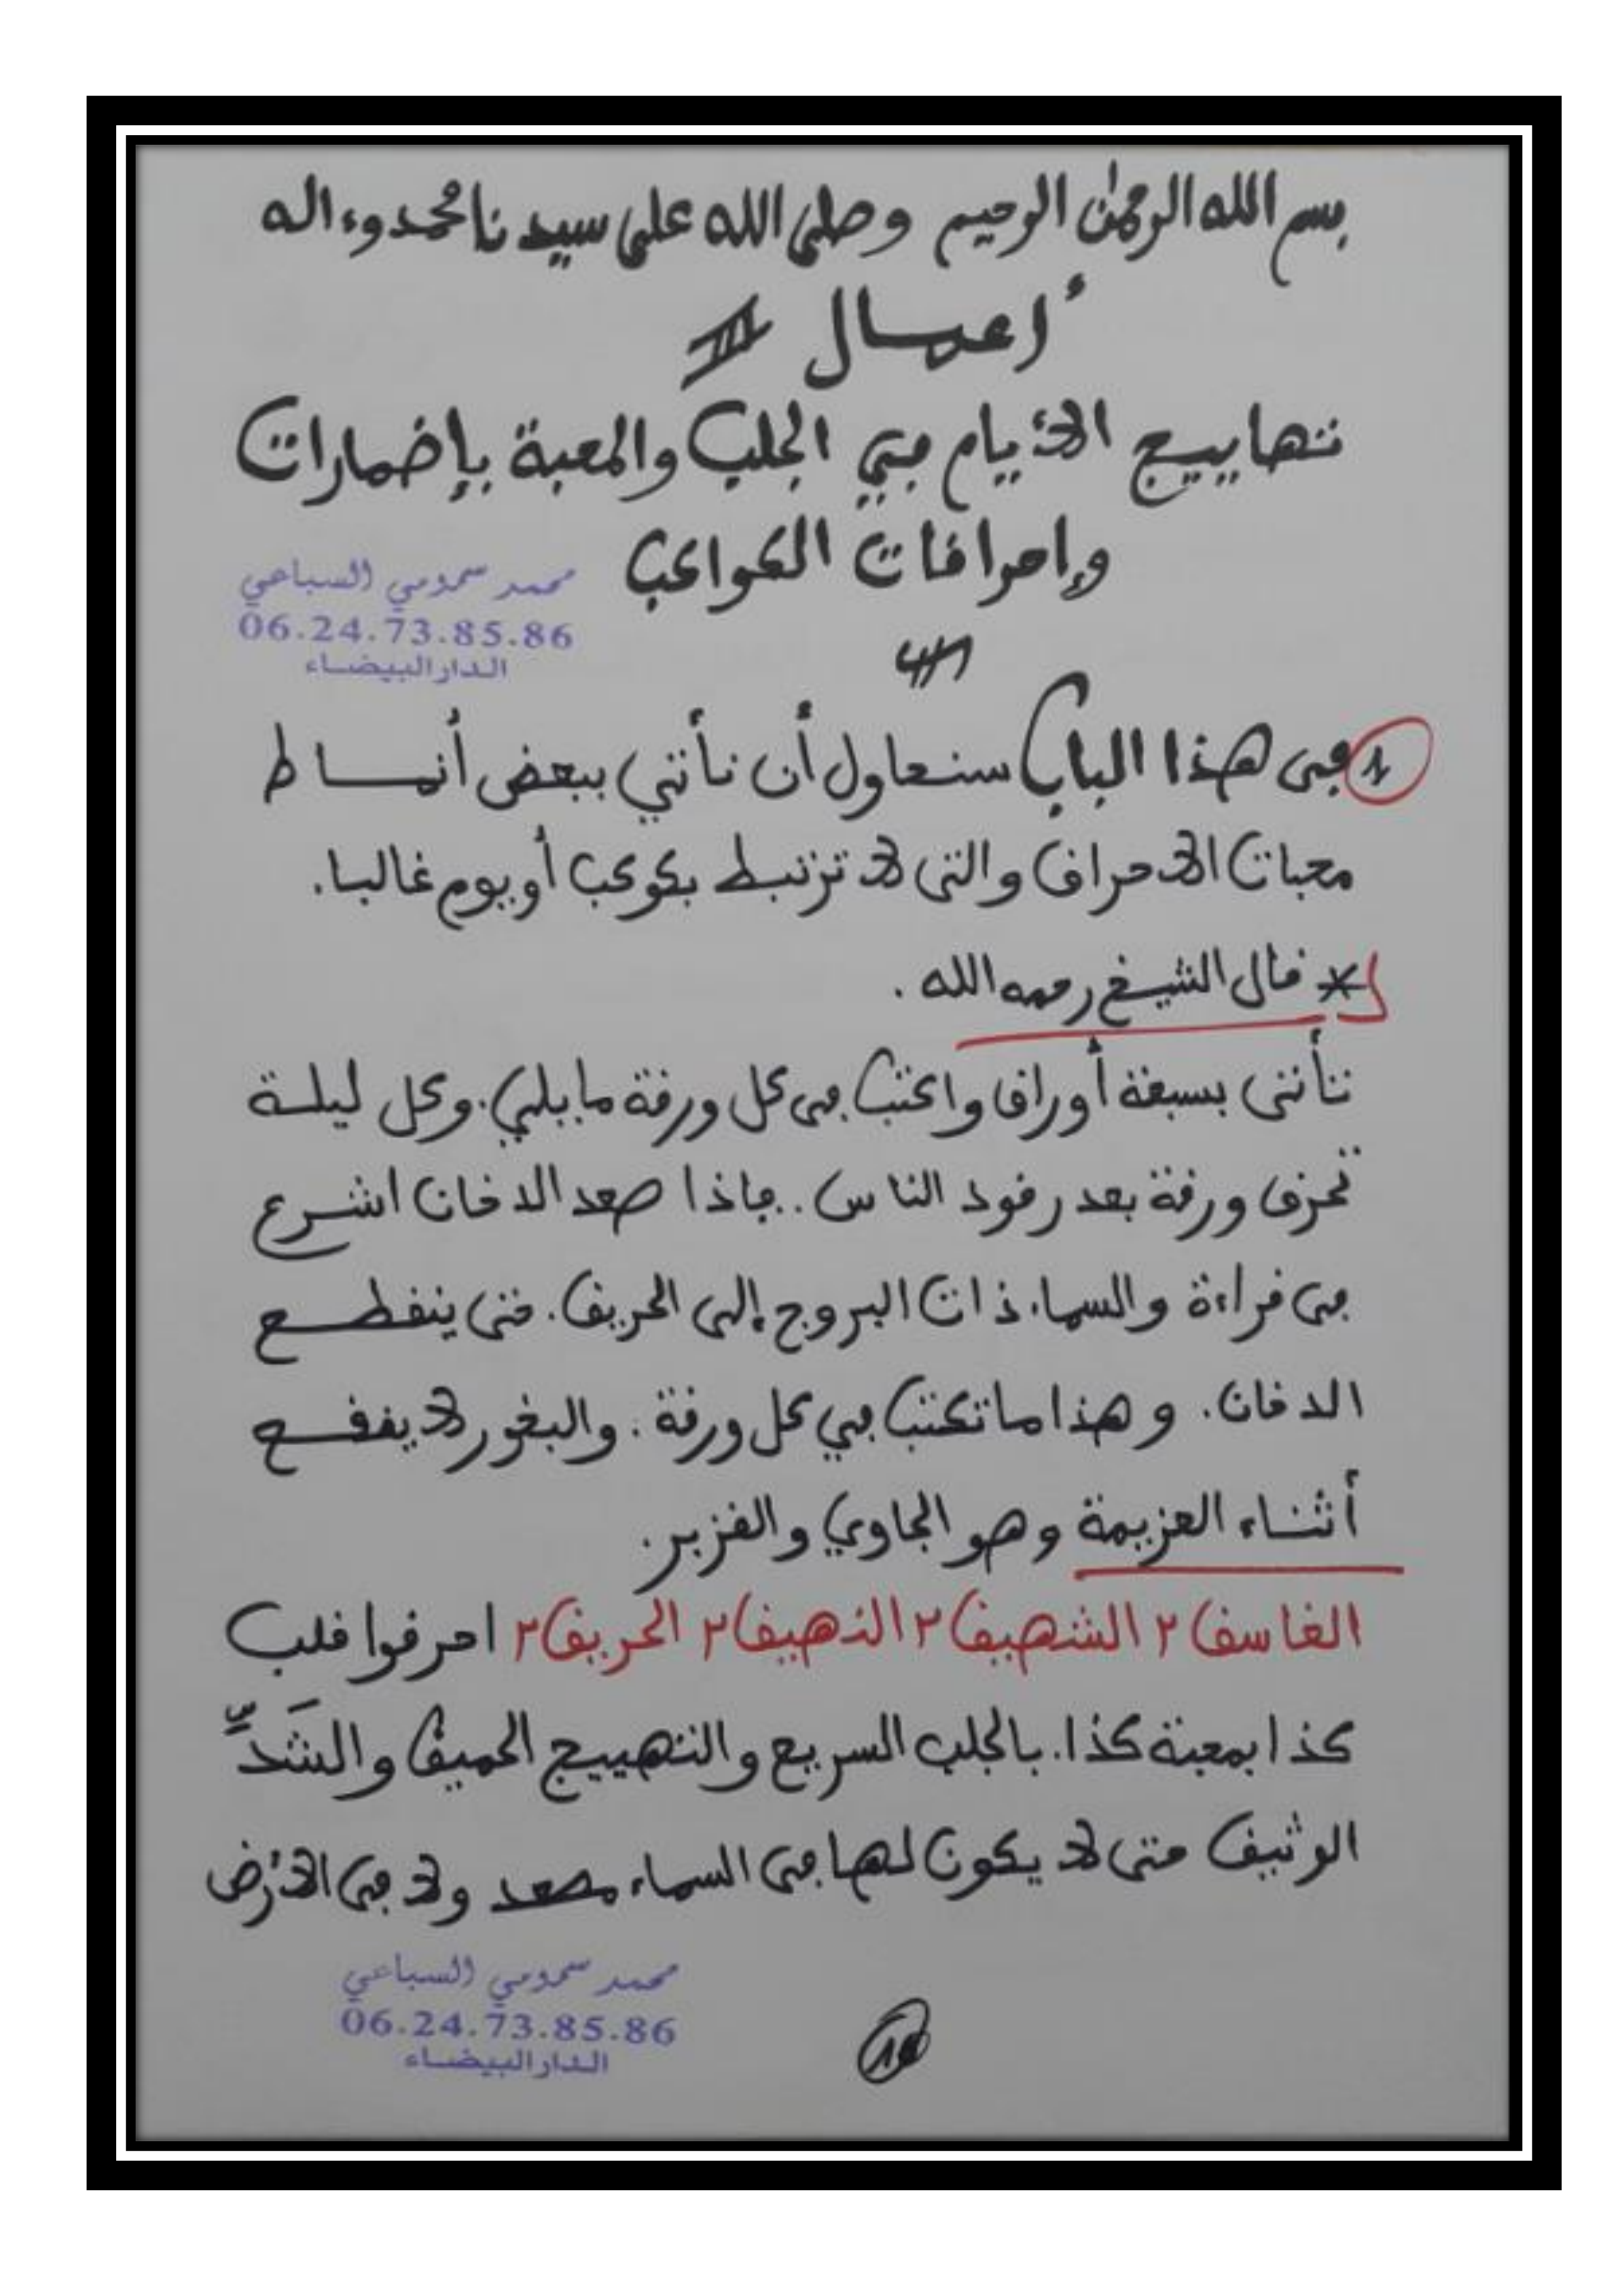 بسم الله الرحمٰن الرحيم وصلى الله على سيدنا محمد وءاله
أعمال III
تهاييج الأيام في الجلب والمحبة بإضمارات
وإحراقات الكواكب
محمد سمومي السباعي
06.24.73.85.86
الدار البيضاء
1 في هذا الباب سنحاول أن نأتي ببعض أنماط
محبات الاحراق والتي لا ترتبط بكوكب أو يوم غالبا.
* قال الشيخ رحمه الله.
تأتي بسبعة أوراق واكتب في كل ورقة ما يلي. وكل ليلة
تحرق ورقة بعد رقود الناس.. فإذا صعد الدخان اشرع
في قراءة والسماء ذات البروج إلى الحريق. حتى ينقطع
الدخان. وهذا ما تكتب في كل ورقة. والبخور لا يقطع
أثناء العزيمة وهو الجاوي والقزبر.
الغاسق ٢ الشهيق ٢ الزهيق ٢ الحريق ٢ احرقوا قلب
كذا بمحبة كذا. بالجلب السريع والتهييج الحميق والشَدِّ
الوثيق حتى لا يكون لها في السماء مصعد ولا في الأرض
محمد سمومي السباعي
06.24.73.85.86
الدار البيضاء